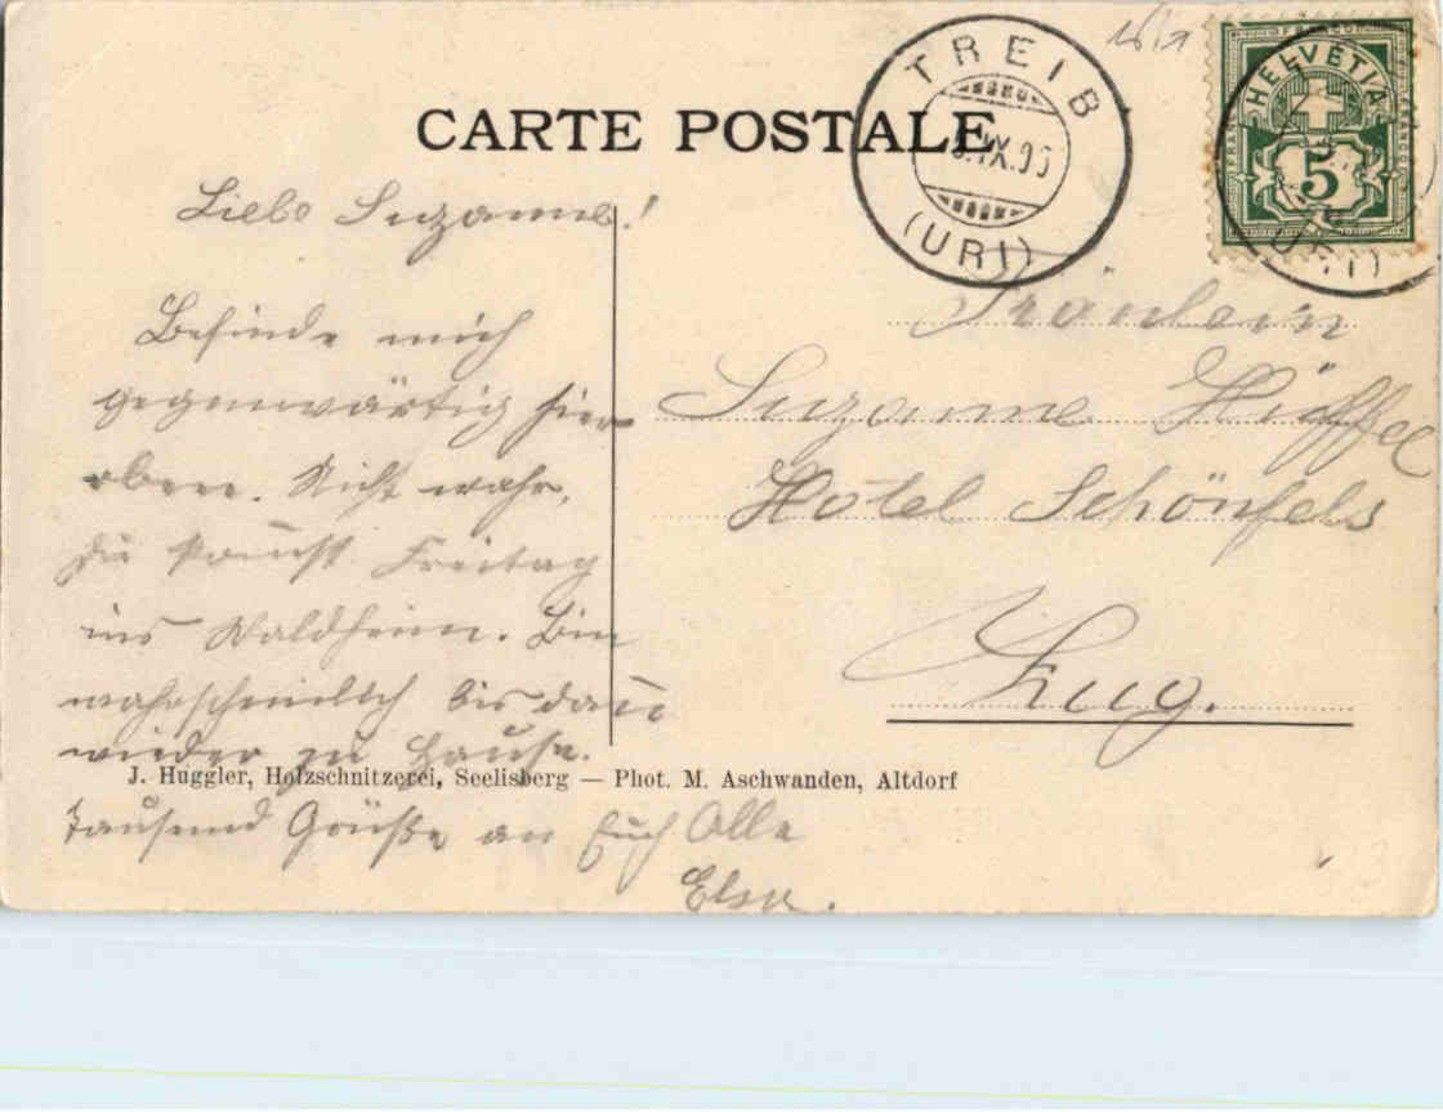 CARTE POSTALE
TREIB
IX.06
(URI)
HELVETIA
5
Liebe Suzanne!
Befinde mich
gegenwärtig hier
oben. Nicht wahr,
Du kom̄st Freitag
ins Waldheim. Bin
wahrscheinlich bis dan̄
wieder zu Hause.
Tausend Grüße an Euch Alle
Elsa.
Fräulein
Suzanne
Hotel Schönfels
Zug.
J. Huggler, Holzschnitzerei, Seelisberg — Phot. M. Aschwanden, Altdorf